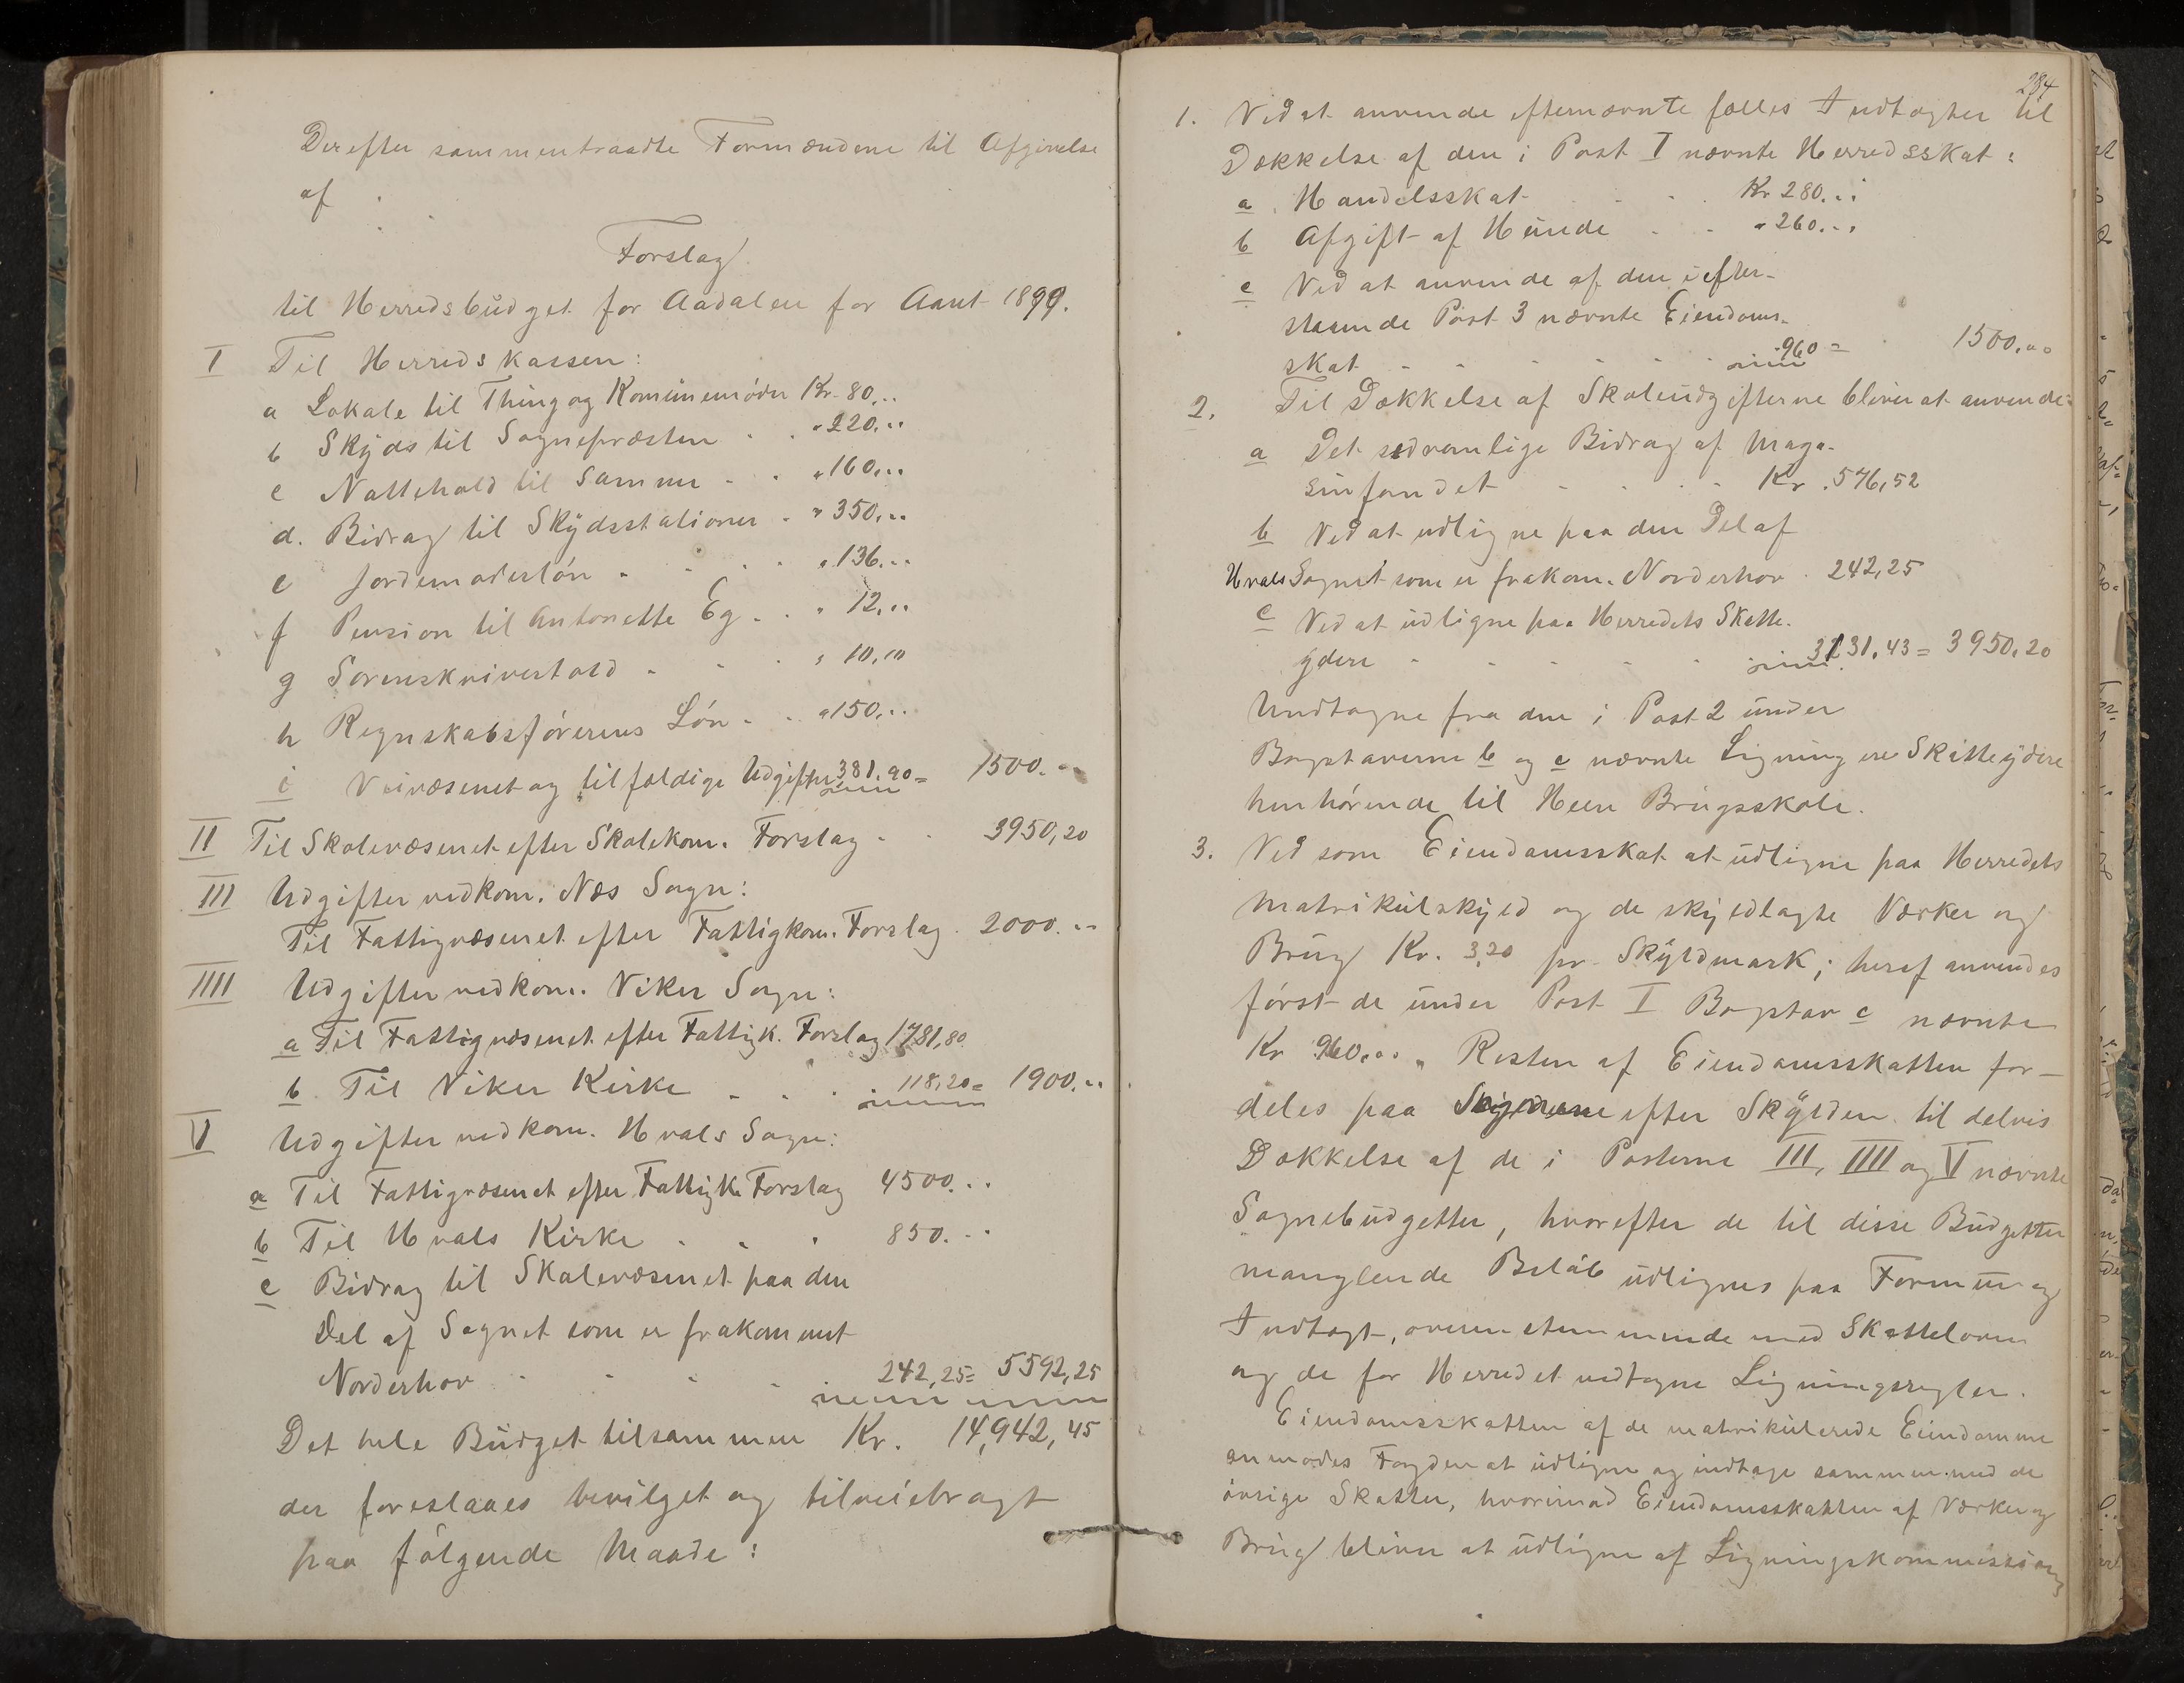 Derefter sammentraadte Formændene til Afgivelse
af
Forslag
til Herredsbudget for Aadalen for Aaret 1899.
I Til Herredskassen:
a Lokale til Thing og Komünemöder Kr. 80,..
b Skyds til Sognepræsten . . " 220,..
c Nattehold til Samme . . " 160,..
d. Bidrag til Skydsstationer . " 350,..
e Jordemoderlön . . . . " 136,..
f Pension til Antonette Eg . . " 12,..
g Sorenskrivertold . . . " 10,10
h Regnskabsförerens Lön . . " 150,..
i Veivæsenet og tilfældige Udgifter 381,90 = 1500. ..
II Til Skolevæsenet efter Skolekom. Forslag . . 3950,20
III Udgifter vedkom. Næs Sogn:
Til Fattigvæsenet efter Fattigkom. Forslag . 2000. ..
IIII Udgifter vedkom. Viker Sogn:
a Til Fattigvæsenet efter Fattigk. Forslag 1781,80
b Til Viker Kirke . . . 118,20 = 1900. ..
V Udgifter vedkom. Hvals Sogn:
a Til Fattigvæsenet efter Fattigk. Forslag 4500. ..
b Til Hvals Kirke . . . 850. ..
c Bidrag til Skolevæsenet paa den
Del af Sognet som er frakommet
Norderhov . . . . 242,25 = 5592,25
Det hele Büdget tilsammen Kr. 14,942,45
der foreslaaes bevilget og tilveiebragt
paa følgende Maade:
284
1. Ved at anvende efternævnte fælles Indtægter til
Dækkelse af den i Post I nævnte Herredsskat:
a. Handelsskat . . . Kr 280. ..
b Afgift af Hünde . . " 260. ..
c Ved at anvende af den i efter-
staaende Post 3 nævnte Eiendoms-
skat . . . . . . 960 = 1500. ..
2. Til Dækkelse af Skoleüdgifterne bliver at anvende:
a Det sedvanlige Bidrag af Maga-
sinfondet . . . . Kr. 576,52
b Ved at udligne paa den Del af
Hvals Sognet som er frakom. Norderhov . 242,25
c Ved at üdligne paa Herredets Skatte-
ydere . . . . . 3131,43 = 3950,20
Undtagne fra den i Post 2 ünder
Bogstaverne b og c nævnte Ligning ere Skatteydere
henhørende til Heen Brügsskole.
3. Ved som Eiendomsskat at üdligne paa Herredets
Matrikülskyld og de skyldlagte Værker og
Brüg Kr. 3,20 pr Skyldmark; heraf anvendes
först de ünder Post I Bogstav c nævnte
Kr 960. .. . Resten af Eiendomsskatten for-
deles paa Sognene efter Skylden til delvis
Dækkelse af de i Posterne III, IIII og V nævnte
Sognebüdgetter, hvorefter de til disse Büdgetter
manglende Beløb üdlignes paa Formüe og
Indtægt, overensstemmende med Skatteloven
og de for Herredet vedtagne Ligningsregler.
Eiendomsskatten af de matrikülerede Eiendomme
anmodes Fogden at üdligne og indtage sammen med de
övrige Skatter, hvorimod Eiendomsskatten af Værker og
Brüg bliver at üdligne af Ligningskommissionen